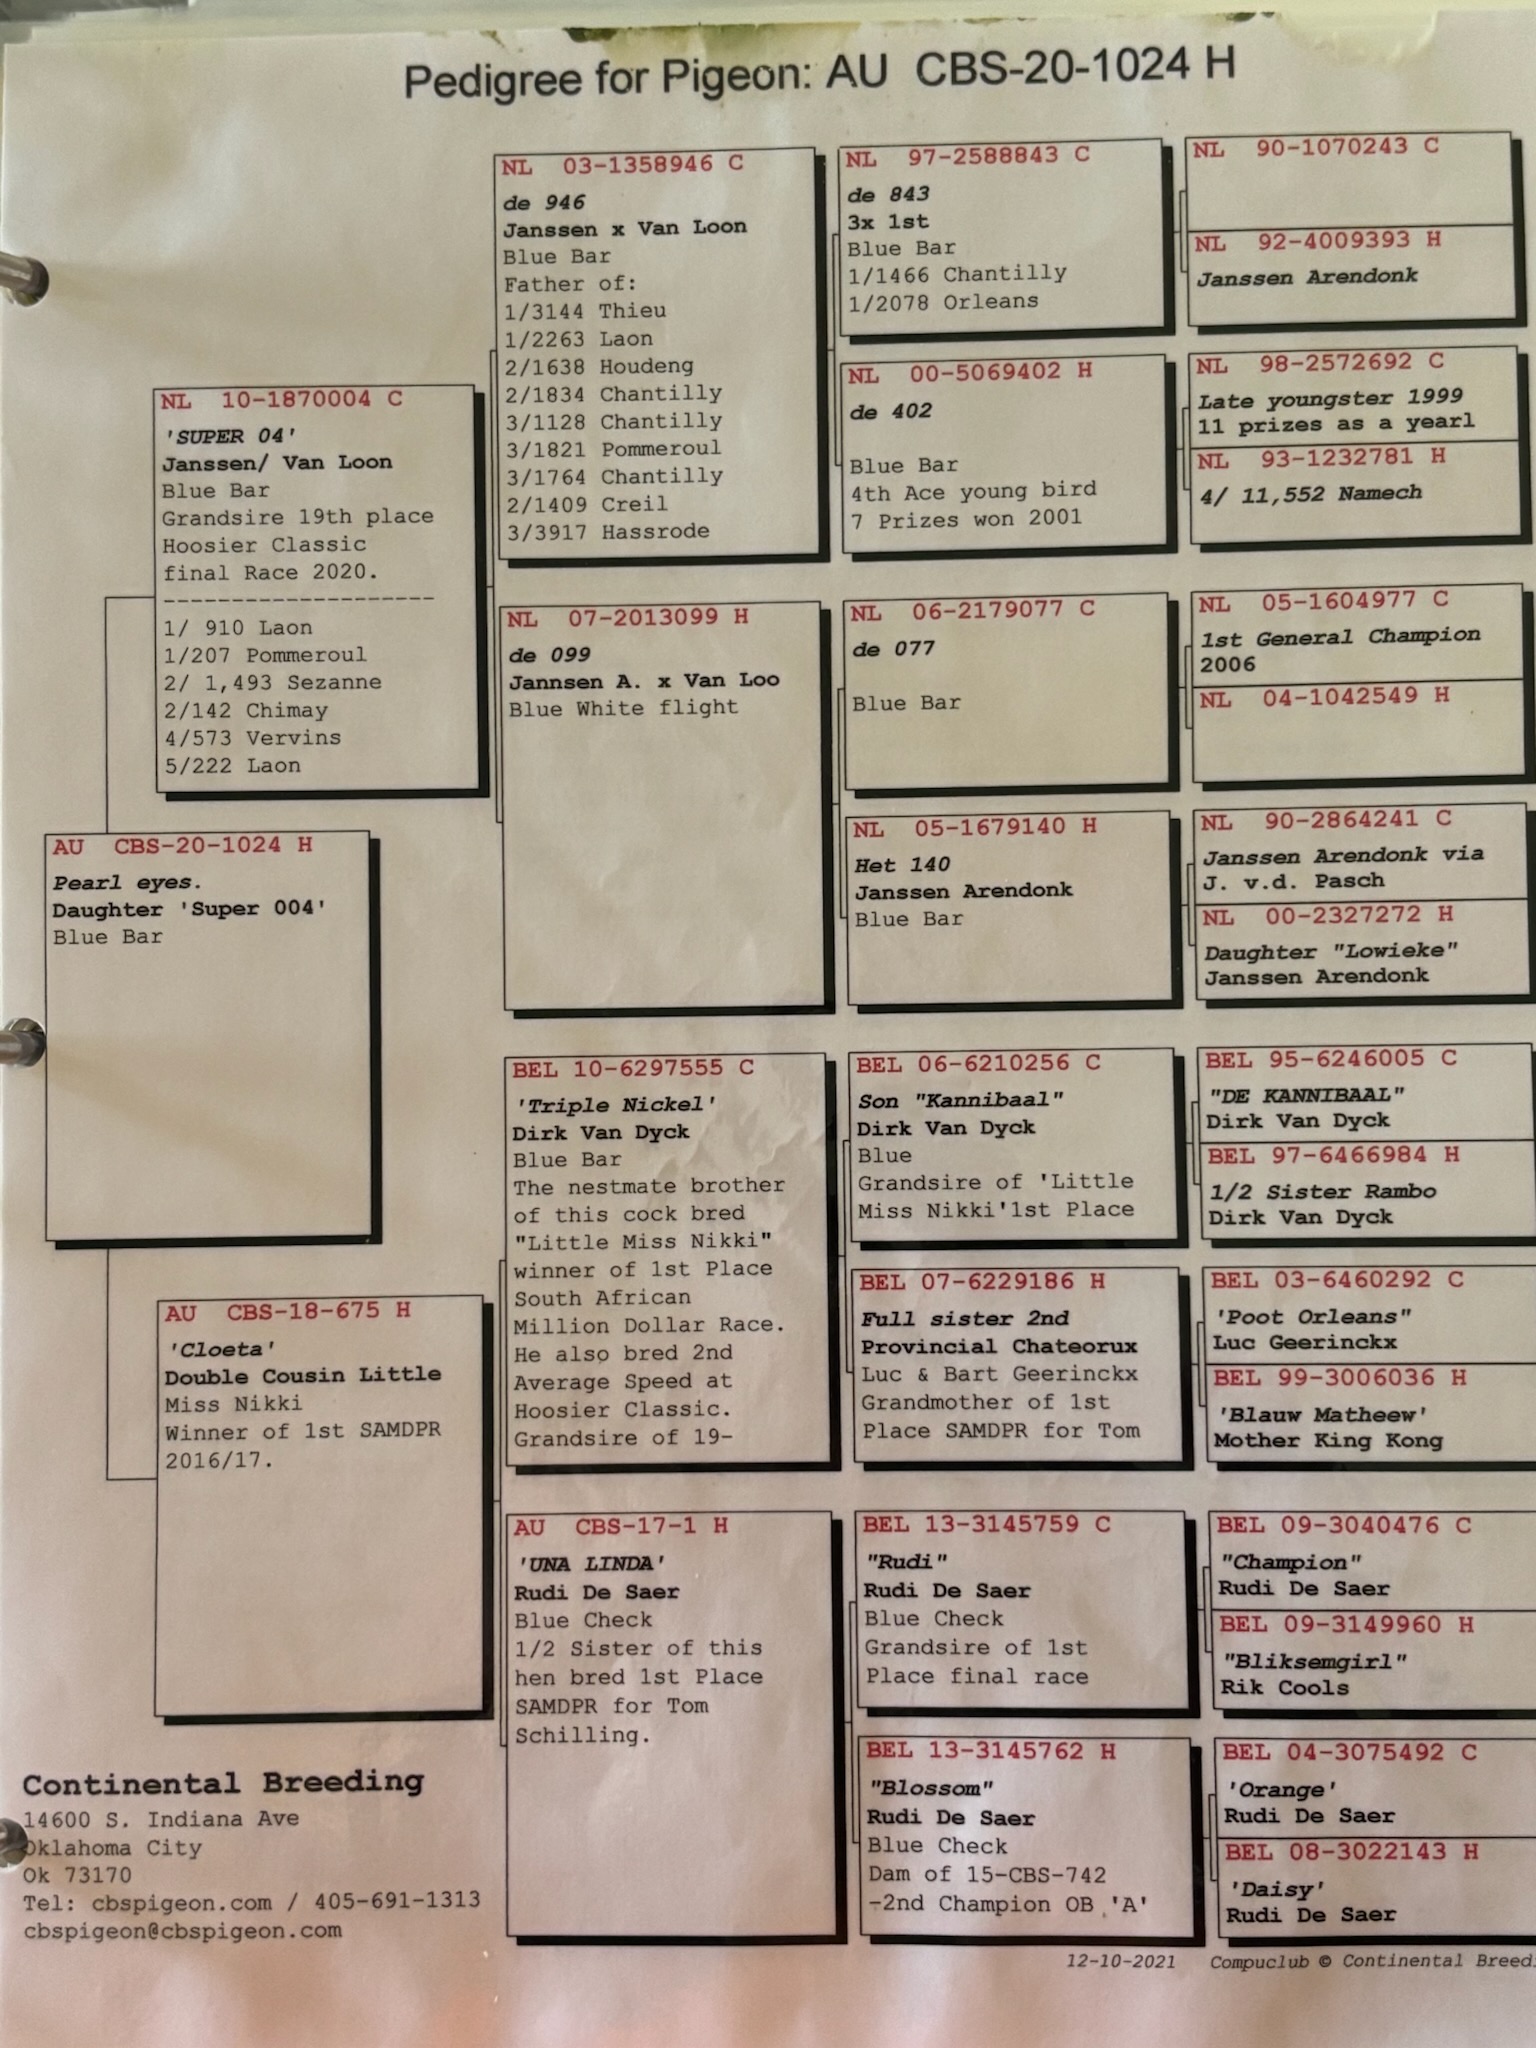 Pedigree for Pigeon: AU CBS-20-1024 H
AU CBS-20-1024 H
Pearl eyes.
Daughter 'Super 004'
Blue Bar
NL 10-1870004 C
'SUPER 04'
Janssen/ Van Loon
Blue Bar
Grandsire 19th place
Hoosier Classic
final Race 2020.
--------------------
1/ 910 Laon
1/207 Pommeroul
2/ 1,493 Sezanne
2/142 Chimay
4/573 Vervins
5/222 Laon
AU CBS-18-675 H
'Cloeta'
Double Cousin Little
Miss Nikki
Winner of 1st SAMDPR
2016/17.
NL 03-1358946 C
de 946
Janssen x Van Loon
Blue Bar
Father of:
1/3144 Thieu
1/2263 Laon
2/1638 Houdeng
2/1834 Chantilly
3/1128 Chantilly
3/1821 Pommeroul
3/1764 Chantilly
2/1409 Creil
3/3917 Hassrode
NL 07-2013099 H
de 099
Jannsen A. x Van Loo
Blue White flight
BEL 10-6297555 C
'Triple Nickel'
Dirk Van Dyck
Blue Bar
The nestmate brother
of this cock bred
"Little Miss Nikki"
winner of 1st Place
South African
Million Dollar Race.
He also bred 2nd
Average Speed at
Hoosier Classic.
Grandsire of 19-
AU CBS-17-1 H
'UNA LINDA'
Rudi De Saer
Blue Check
1/2 Sister of this
hen bred 1st Place
SAMDPR for Tom
Schilling.
NL 97-2588843 C
de 843
3x 1st
Blue Bar
1/1466 Chantilly
1/2078 Orleans
NL 00-5069402 H
de 402
Blue Bar
4th Ace young bird
7 Prizes won 2001
NL 06-2179077 C
de 077
Blue Bar
NL 05-1679140 H
Het 140
Janssen Arendonk
Blue Bar
BEL 06-6210256 C
Son "Kannibaal"
Dirk Van Dyck
Blue
Grandsire of 'Little
Miss Nikki'1st Place
BEL 07-6229186 H
Full sister 2nd
Provincial Chateorux
Luc & Bart Geerinckx
Grandmother of 1st
Place SAMDPR for Tom
BEL 13-3145759 C
"Rudi"
Rudi De Saer
Blue Check
Grandsire of 1st
Place final race
BEL 13-3145762 H
"Blossom"
Rudi De Saer
Blue Check
Dam of 15-CBS-742
-2nd Champion OB 'A'
NL 90-1070243 C
NL 92-4009393 H
Janssen Arendonk
NL 98-2572692 C
Late youngster 1999
11 prizes as a yearl
NL 93-1232781 H
4/ 11,552 Namech
NL 05-1604977 C
1st General Champion
2006
NL 04-1042549 H
NL 90-2864241 C
Janssen Arendonk via
J. v.d. Pasch
NL 00-2327272 H
Daughter "Lowieke"
Janssen Arendonk
BEL 95-6246005 C
"DE KANNIBAAL"
Dirk Van Dyck
BEL 97-6466984 H
1/2 Sister Rambo
Dirk Van Dyck
BEL 03-6460292 C
'Poot Orleans"
Luc Geerinckx
BEL 99-3006036 H
'Blauw Matheew'
Mother King Kong
BEL 09-3040476 C
"Champion"
Rudi De Saer
BEL 09-3149960 H
"Bliksemgirl"
Rik Cools
BEL 04-3075492 C
'Orange'
Rudi De Saer
BEL 08-3022143 H
'Daisy'
Rudi De Saer
Continental Breeding
14600 S. Indiana Ave
Oklahoma City
Ok 73170
Tel: cbspigeon.com / 405-691-1313
cbspigeon@cbspigeon.com
12-10-2021 Compuclub © Continental Breedi